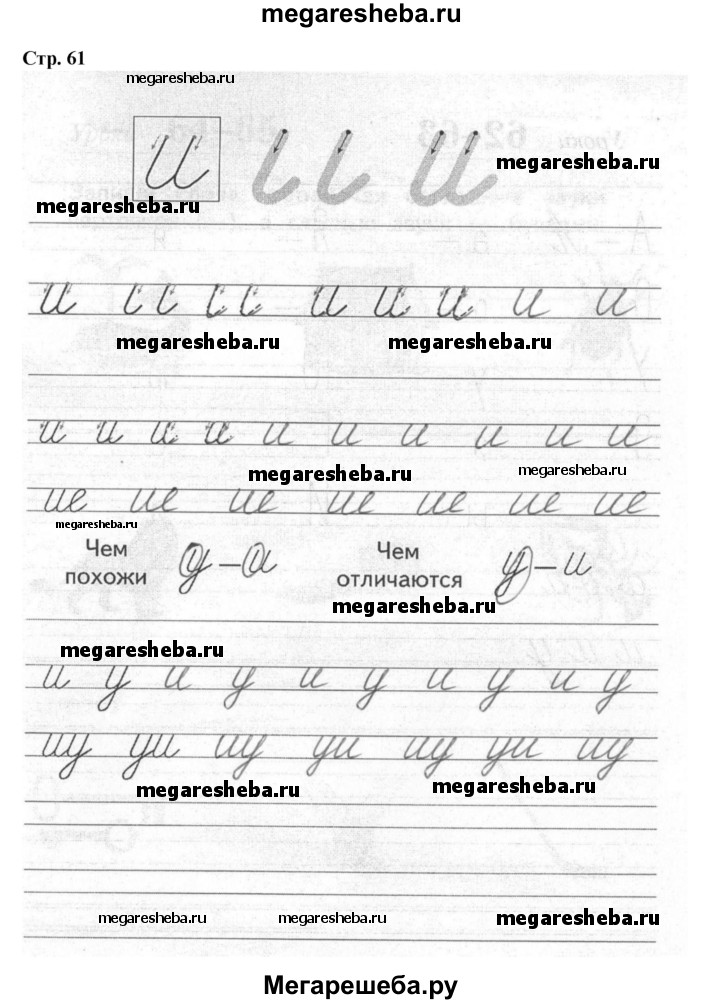 megaresheba.ru
Стр. 61
megaresheba.ru
и
и
megaresheba.ru
megaresheba.ru
и и и и и и
megaresheba.ru megaresheba.ru
и и и и и и и и и и
megaresheba.ru megaresheba.ru
ие ие ие ие ие ие ие
megaresheba.ru
Чем похожи у – а Чем отличаются у – и
megaresheba.ru
megaresheba.ru
и у и у и у и у и у
иу уи иу уи иу уи иу
megaresheba.ru megaresheba.ru
megaresheba.ru megaresheba.ru megaresheba.ru
Мегарешеба.ру